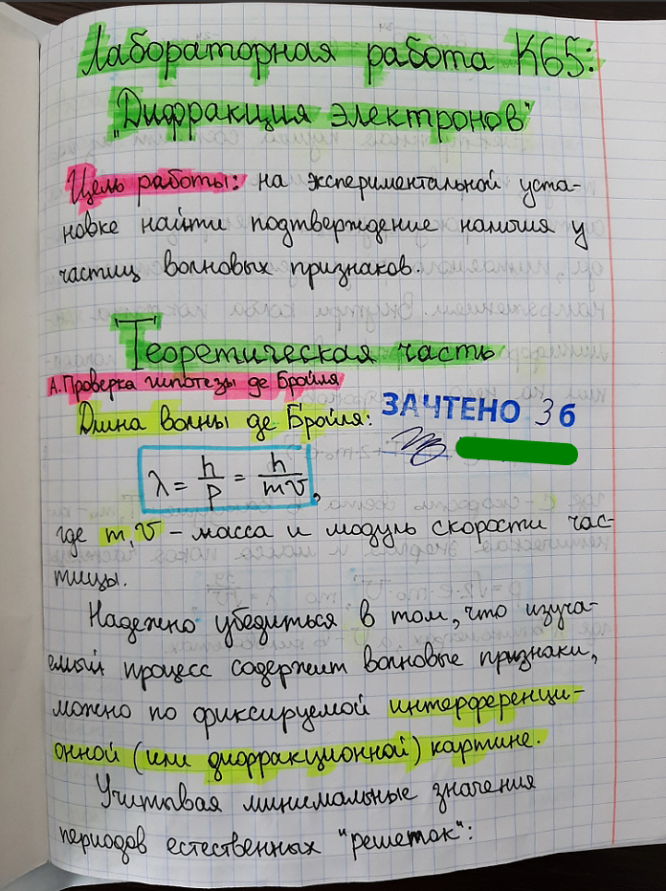 Лабораторная работа К65:
"Дифракция электронов"
Цель работы: на экспериментальной уста-
новке найти подтверждение наличия у
частиц волновых признаков.
Теоретическая часть
А. Проверка гипотезы де Бройля
Длина волны де Бройля: ЗАЧТЕНО 3б
λ = h/p = h/mv,
где m, v – масса и модуль скорости час-
тицы.
Надежно убедиться в том, что изуча-
емый процесс содержит волновые признаки,
можно по фиксируемой интерференци-
онной (или дифракционной) картине.
Учитывая минимальные значения
периодов естественных "решеток":